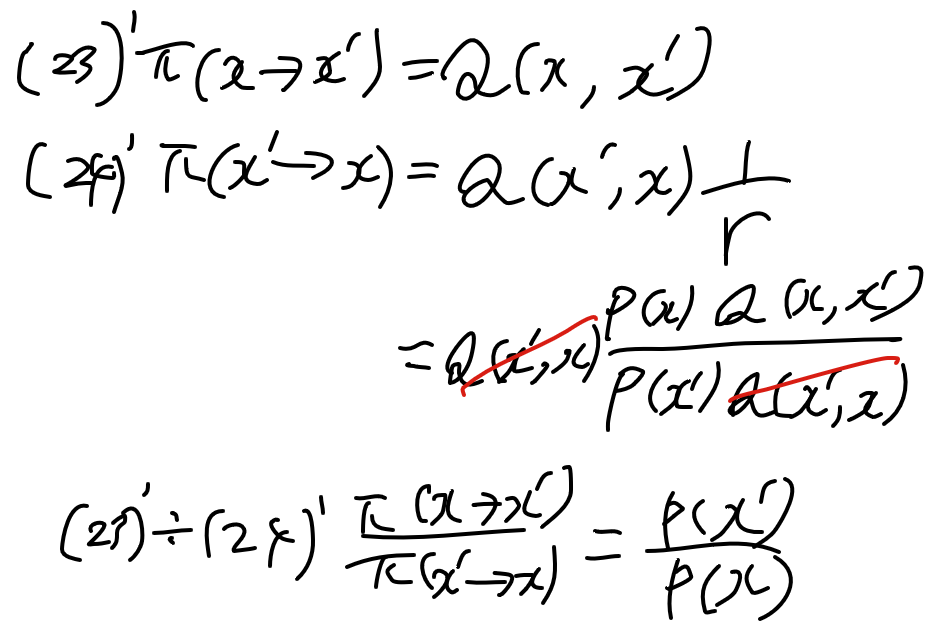 (23)' π(x→x') = Q(x, x')
(24)' π(x'→x) = Q(x', x) 1/r
= Q(x', x) P(x) Q(x, x') / P(x') Q(x', x)
(23)' ÷ (24)' π(x→x') / π(x'→x) = P(x') / P(x)